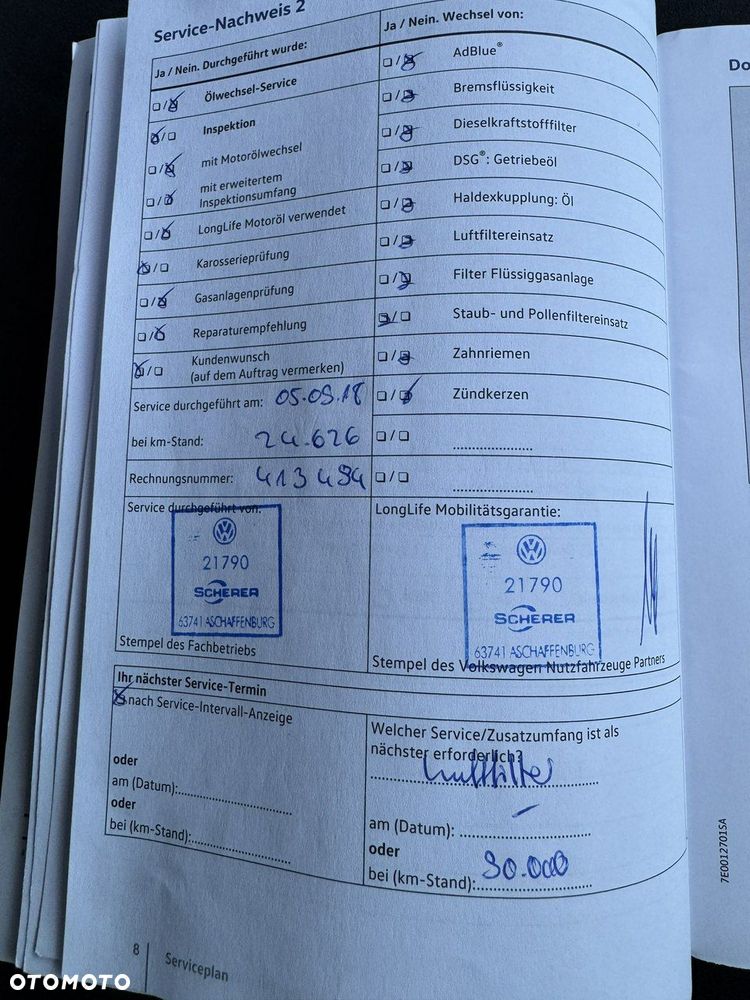 Service-Nachweis 2
Ja / Nein. Durchgeführt wurde:
Ja / Nein. Wechsel von:
Ölwechsel-Service
Inspektion
mit Motorölwechsel
mit erweitertem
Inspektionsumfang
LongLife Motoröl verwendet
Karosserieprüfung
Gasanlagenprüfung
Reparaturempfehlung
Kundenwunsch
(auf dem Auftrag vermerken)
AdBlue®
Bremsflüssigkeit
Dieselkraftstofffilter
DSG®: Getriebeöl
Haldexkupplung: Öl
Luftfiltereinsatz
Filter Flüssiggasanlage
Staub- und Pollenfiltereinsatz
Zahnriemen
Zündkerzen
Service durchgeführt am: 05.09.18
bei km-Stand: 24.626
Rechnungsnummer: 413494
Service durchgeführt von:
21790
SCHERER
63741 ASCHAFFENBURG
Stempel des Fachbetriebs
LongLife Mobilitätsgarantie:
21790
SCHERER
63741 ASCHAFFENBURG
Stempel des Volkswagen Nutzfahrzeuge Partners
Ihr nächster Service-Termin
nach Service-Intervall-Anzeige
oder
am (Datum):
oder
bei (km-Stand):
Welcher Service/Zusatzumfang ist als
nächster erforderlich?
Luftfilter
am (Datum): –
oder
bei (km-Stand): 90.000
8 Serviceplan
Do
7E0012701SA
OTOMOTO